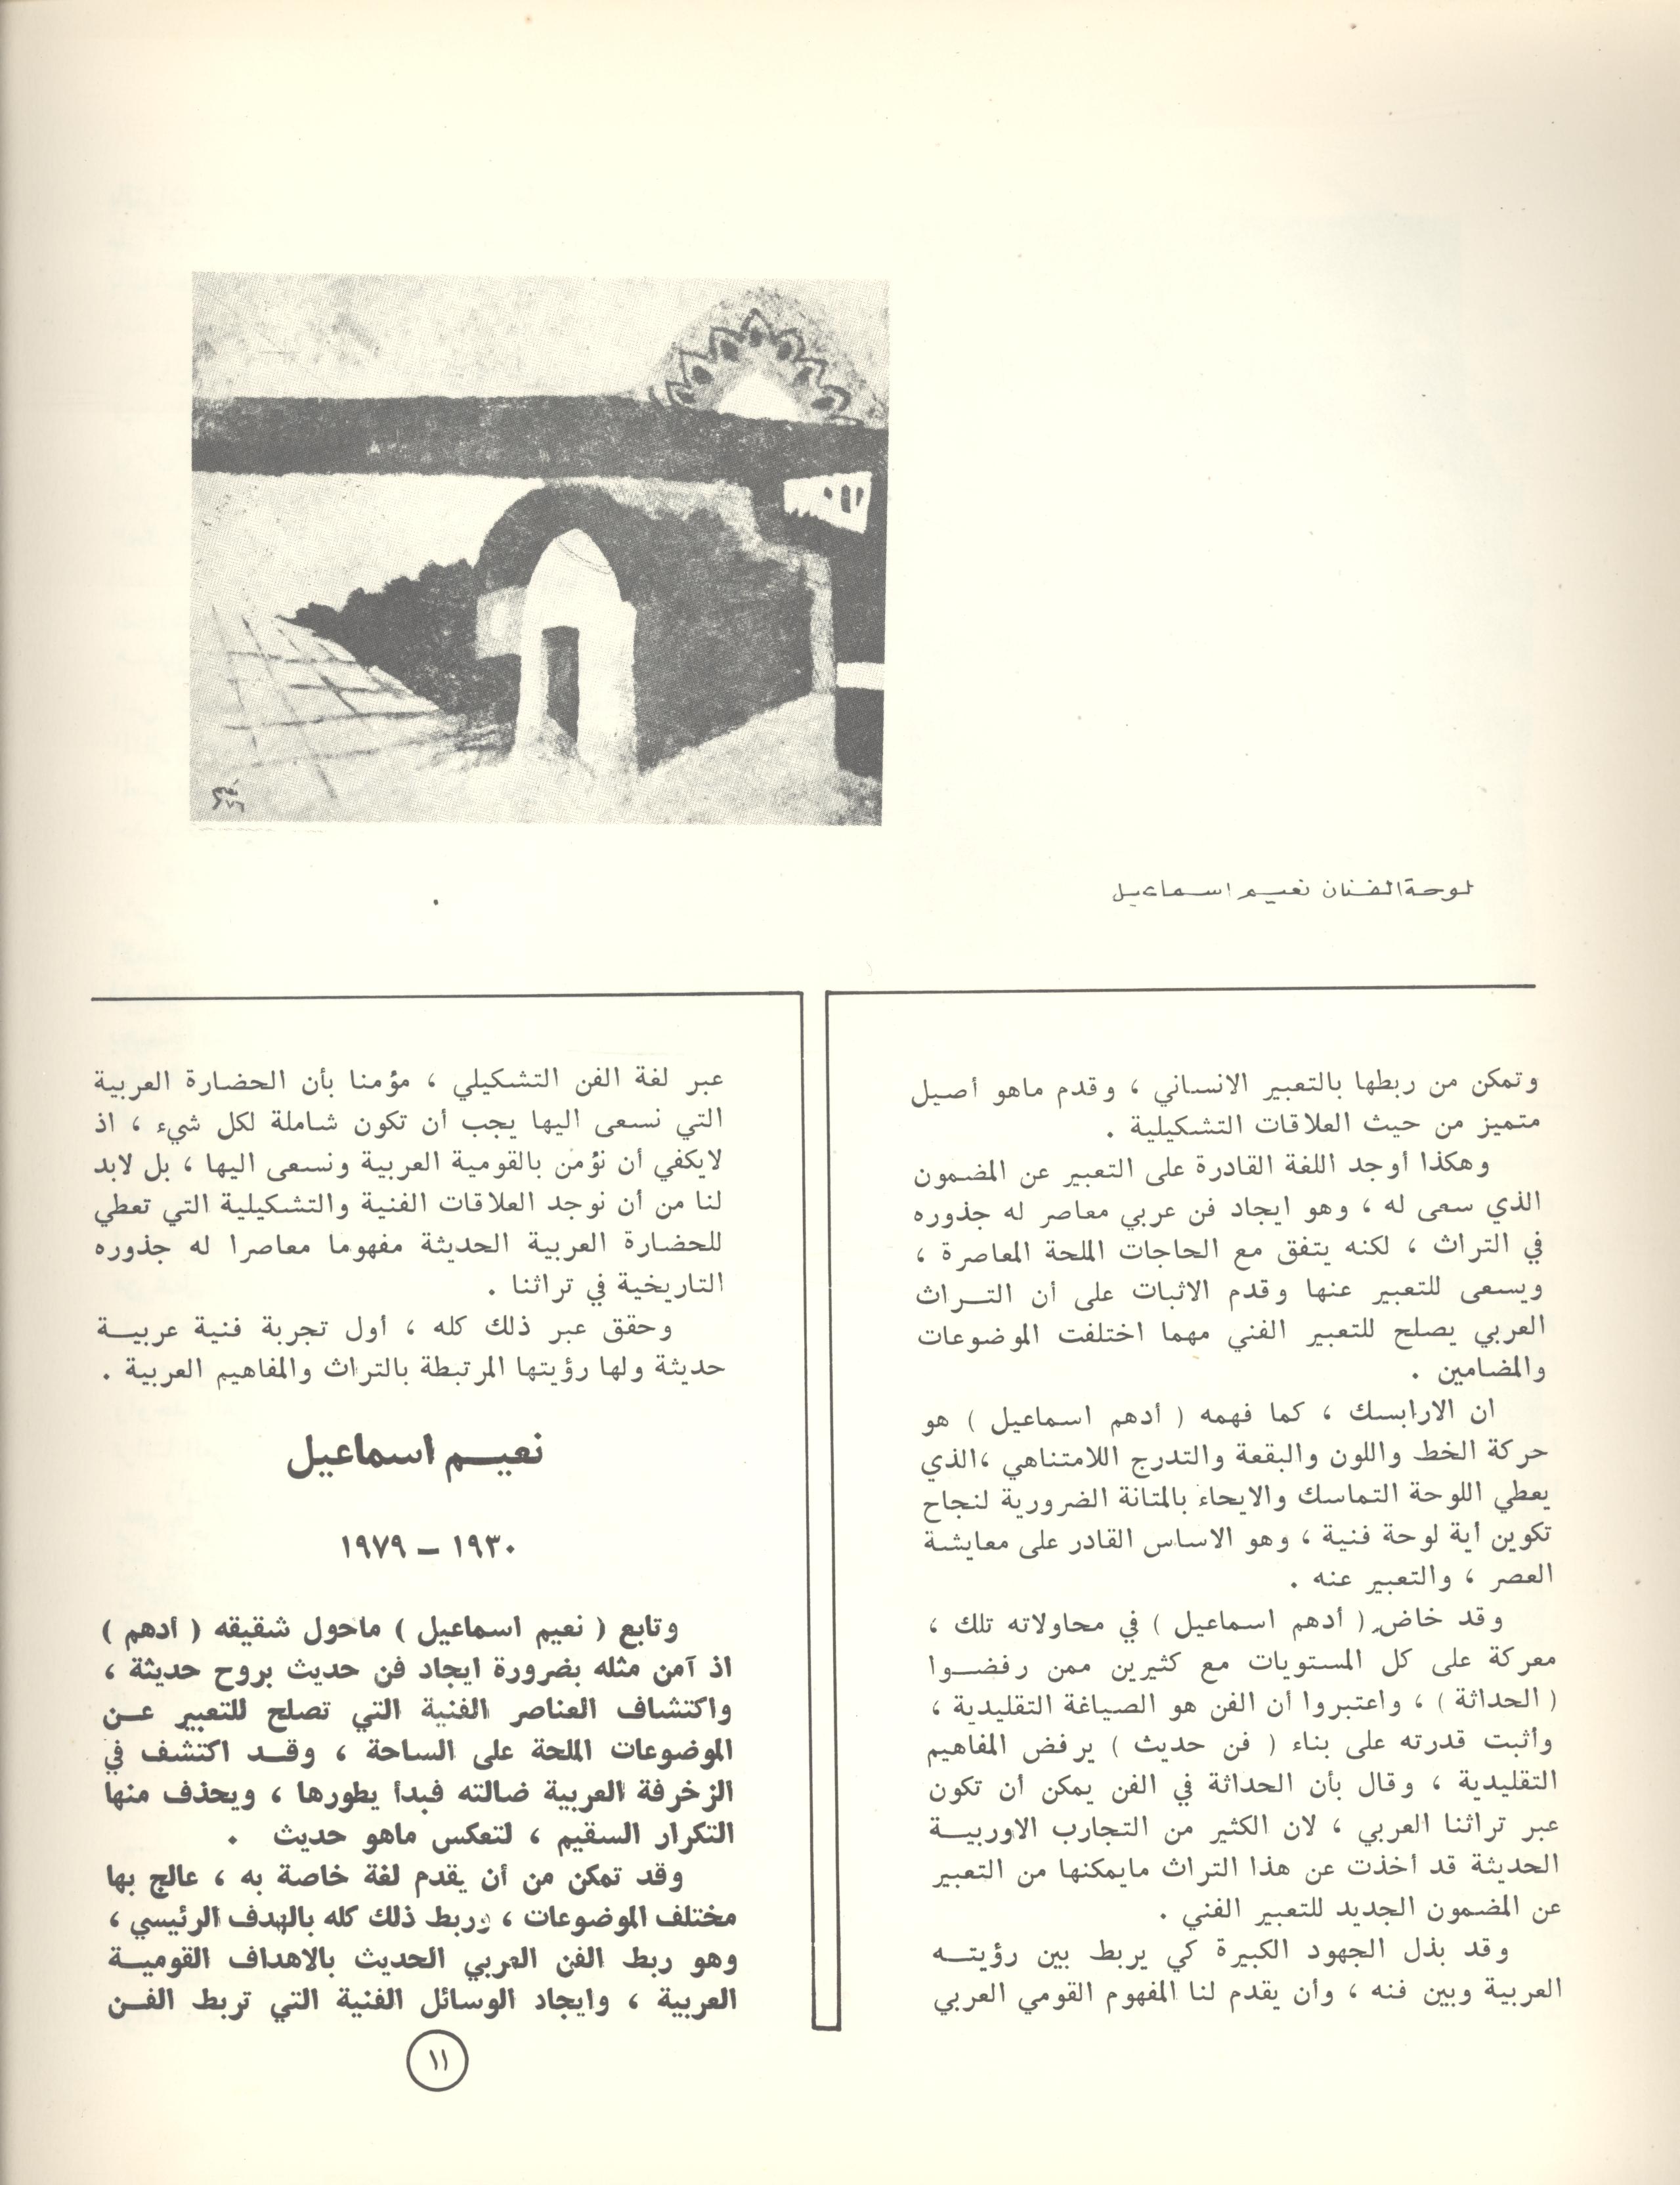 لوحة الفنان نعيم اسماعيل
وتمكن من ربطها بالتعبير الانساني ، وقدم ماهو أصيل
متميز من حيث العلاقات التشكيلية .
وهكذا أوجد اللغة القادرة على التعبير عن المضمون
الذي سعى له ، وهو ايجاد فن عربي معاصر له جذوره
في التراث ، لكنه يتفق مع الحاجات الملحة المعاصرة ،
ويسعى للتعبير عنها وقدم الاثبات على أن التراث
العربي يصلح للتعبير الفني مهما اختلفت الموضوعات
والمضامين .
ان الارابسك ، كما فهمه ( أدهم اسماعيل ) هو
حركة الخط واللون والبقعة والتدرج اللامتناهي ،الذي
يعطي اللوحة التماسك والايحاء بالمتانة الضرورية لنجاح
تكوين أية لوحة فنية ، وهو الاساس القادر على معايشة
العصر ، والتعبير عنه .
وقد خاض ( أدهم اسماعيل ) في محاولاته تلك ،
معركة على كل المستويات مع كثيرين ممن رفضوا
( الحداثة ) ، واعتبروا أن الفن هو الصياغة التقليدية ،
وأثبت قدرته على بناء ( فن حديث ) يرفض المفاهيم
التقليدية ، وقال بأن الحداثة في الفن يمكن أن تكون
عبر تراثنا العربي ، لان الكثير من التجارب الاوربية
الحديثة قد أخذت عن هذا التراث مايمكنها من التعبير
عن المضمون الجديد للتعبير الفني .
وقد بذل الجهود الكبيرة كي يربط بين رؤيته
العربية وبين فنه ، وأن يقدم لنا المفهوم القومي العربي
عبر لغة الفن التشكيلي ، مؤمنا بأن الحضارة العربية
التي نسعى اليها يجب أن تكون شاملة لكل شيء ، اذ
لايكفي أن نؤمن بالقومية العربية ونسعى اليها ، بل لابد
لنا من أن نوجد العلاقات الفنية والتشكيلية التي تعطي
للحضارة العربية الحديثة مفهوما معاصرا له جذوره
التاريخية في تراثنا .
وحقق عبر ذلك كله ، أول تجربة فنية عربية
حديثة ولها رؤيتها المرتبطة بالتراث والمفاهيم العربية .
نعيم اسماعيل
١٩٣٠ – ١٩٧٩
وتابع ( نعيم اسماعيل ) ماحول شقيقه ( أدهم )
اذ آمن مثله بضرورة ايجاد فن حديث بروح حديثة ،
واكتشاف العناصر الفنية التي تصلح للتعبير عن
الموضوعات الملحة على الساحة ، وقد اكتشف في
الزخرفة العربية ضالته فبدأ يطورها ، ويحذف منها
التكرار السقيم ، لتعكس ماهو حديث .
وقد تمكن من أن يقدم لغة خاصة به ، عالج بها
مختلف الموضوعات ، وربط ذلك كله بالهدف الرئيسي ،
وهو ربط الفن العربي الحديث بالاهداف القومية
العربية ، وايجاد الوسائل الفنية التي تربط الفن
١١